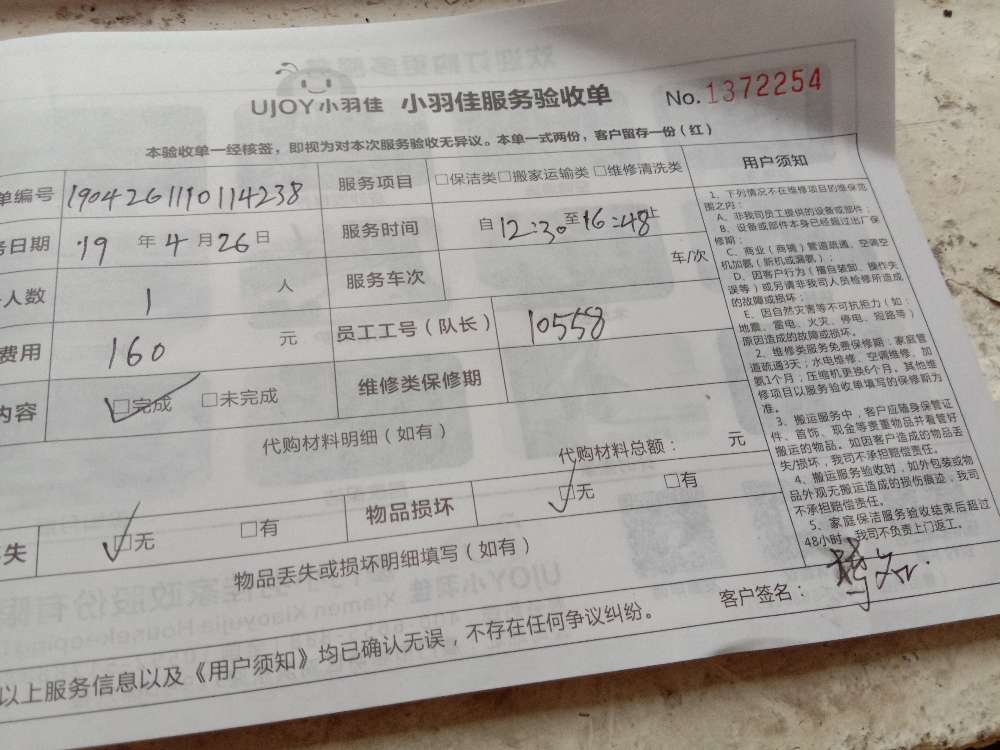 UJOY小羽佳 小羽佳服务验收单 No.1372254
本验收单一经核签，即视为对本次服务验收无异议。本单一式两份，客户留存一份（红）
单编号 1904261190114238 服务项目 □保洁类□搬家运输类□维修清洗类
务日期 19年4月26日 服务时间 自12:30至16:48止
人数 1人 服务车次 车/次
费用 160元 员工工号（队长） 10558
内容 □完成 □未完成 维修类保修期
代购材料明细（如有）
代购材料总额： 元
失 □无 □有 物品损坏 □无 □有
物品丢失或损坏明细填写（如有）
以上服务信息以及《用户须知》均已确认无误，不存在任何争议纠纷。
客户签名：
用户须知
1、下列情况不在维修项目的维保范
围之内：
A、非我司员工提供的设备或部件；
B、设备或部件本身已经超过出厂保
修期；
C、商业（商铺）管道疏通、空调空
机加氨（新机或漏氨）；
D、因客户行为（擅自装卸、操作失
误等）或另请非我司人员检修所造成
的故障或损坏；
E、因自然灾害等不可抗拒力（如：
地震、雷电、火灾、停电、短路等）
原因造成的故障或损坏。
2、维修类服务免费保修期：家庭管
道疏通3天；水电维修、空调维修、加
氨1个月；压缩机更换6个月。其他维
修项目以服务验收单填写的保修期为
准。
3、搬运服务中，客户应随身保管证
件、首饰、现金等贵重物品并看管好
搬运的物品。如因客户造成的物品丢
失/损坏，我司不承担赔偿责任。
4、搬运服务验收时，如外包装或物
品外观无搬运造成的损伤痕迹，我司
不承担赔偿责任。
5、家庭保洁服务验收结束后超过
48小时，我司不负责上门返工。